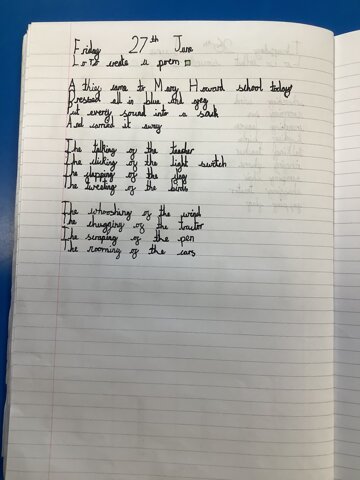 Friday 27th June
L.O to create a poem
A thief came to Mary Howard school today
Dressed all in blue and grey
Put every sound into a sack
And carried it away
The talking of the teacher
The clicking of the light switch
The flapping of the flag
The tweeting of the birds
The whooshing of the wind
The chugging of the tractor
The scraping of the pen
The rooming of the cars